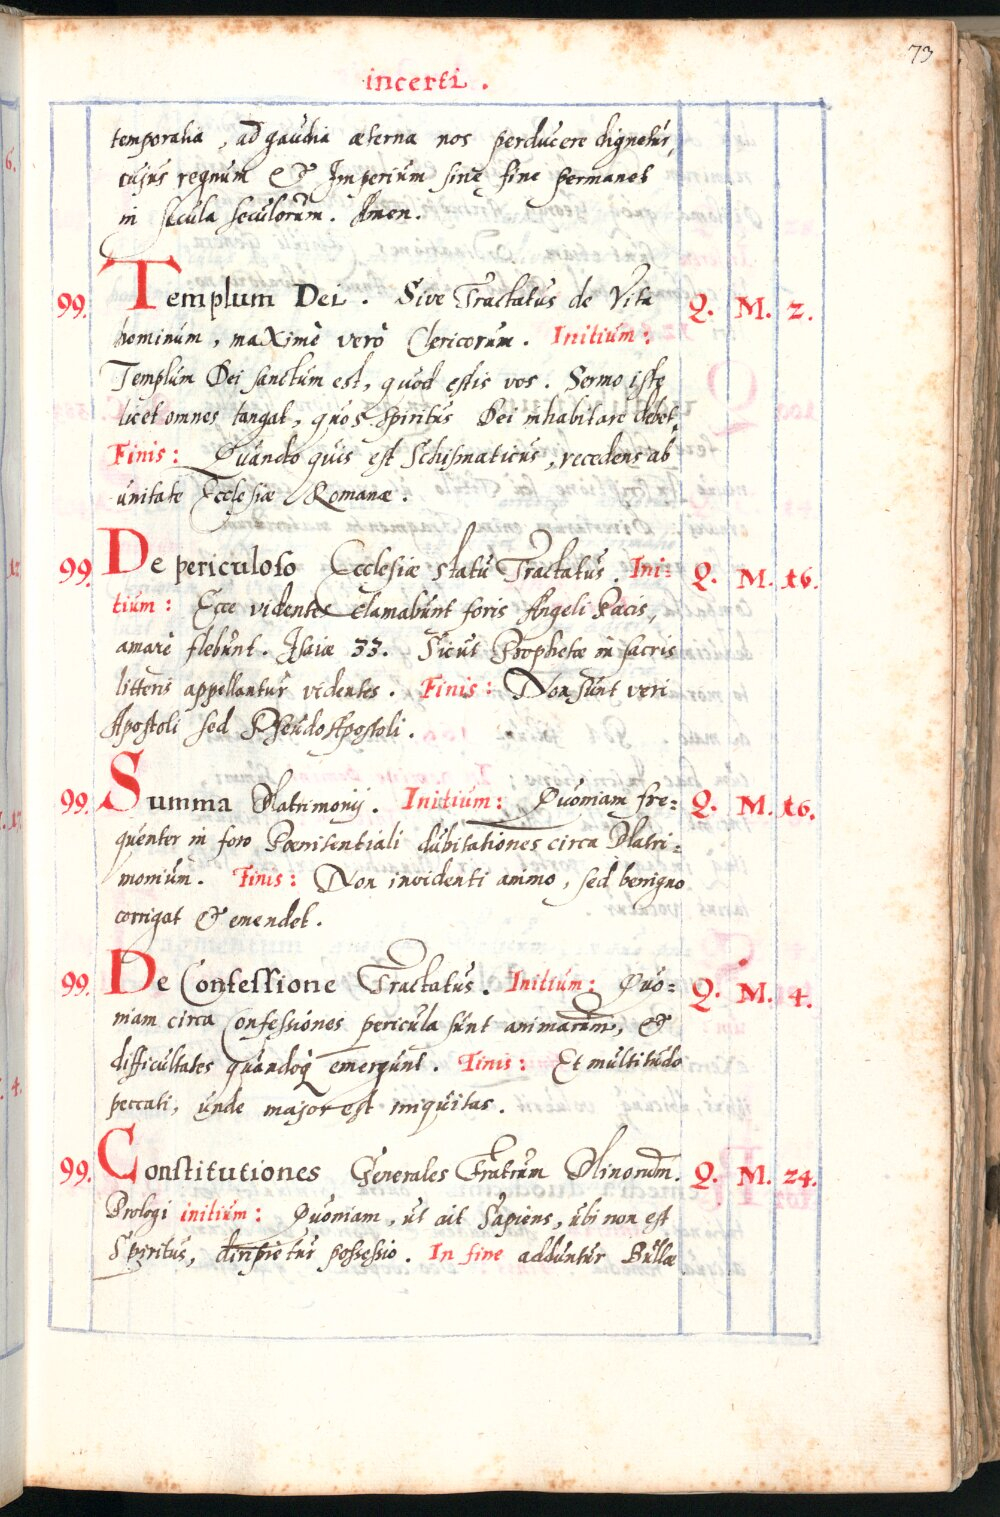 73
incerti.
temporalia, ad gaudia æterna nos perducere dignetur,
cujus regnum & Imperium sine fine permanet
in sæcula seculorum. Amen.
99. Templum Dei. Sive Tractatus de Vita Q. M. 2.
hominum, maXimè verò Clericorum. Initium:
Templum Dei sanctum est, quod estis vos. Sermo iste
licet omnes tangat, quos Spiritus Dei inhabitare debet.
Finis: Quando quis est Schismaticus, recedens ab
unitate Ecclesiæ Romanæ.
99. De periculoso Ecclesiæ statu Tractatus. Ini= Q. M. 16.
tium: Ecce videntes clamabunt foris Angeli Pacis,
amarè flebunt. Isaiæ 33. Sicut Prophetæ in sacris
litteris appellantur videntes. Finis: Non sunt veri
Apostoli sed PseudoApostoli.
99. Summa Matrimonij. Initium: Quoniam fre= Q. M. 16.
quenter in foro Pœnitentiali dubitationes circa Matri=
monium. Finis: Non invidenti animo, sed benigno
corrigat & emendet.
99. De Confessione Tractatus. Initium: Quo= Q. M. 4.
niam circa Confessiones pericula sunt animarum, &
difficultates quandoq emergunt. Finis: Et multitudo
peccati, unde major est iniquitas.
99. Constitutiones Generales Fratrum Minorum. Q. M. 24.
Prologi initium: Quoniam, ut ait Sapiens, ubi non est
Spiritus, diripietur possessio. In fine adduntur Bullæ